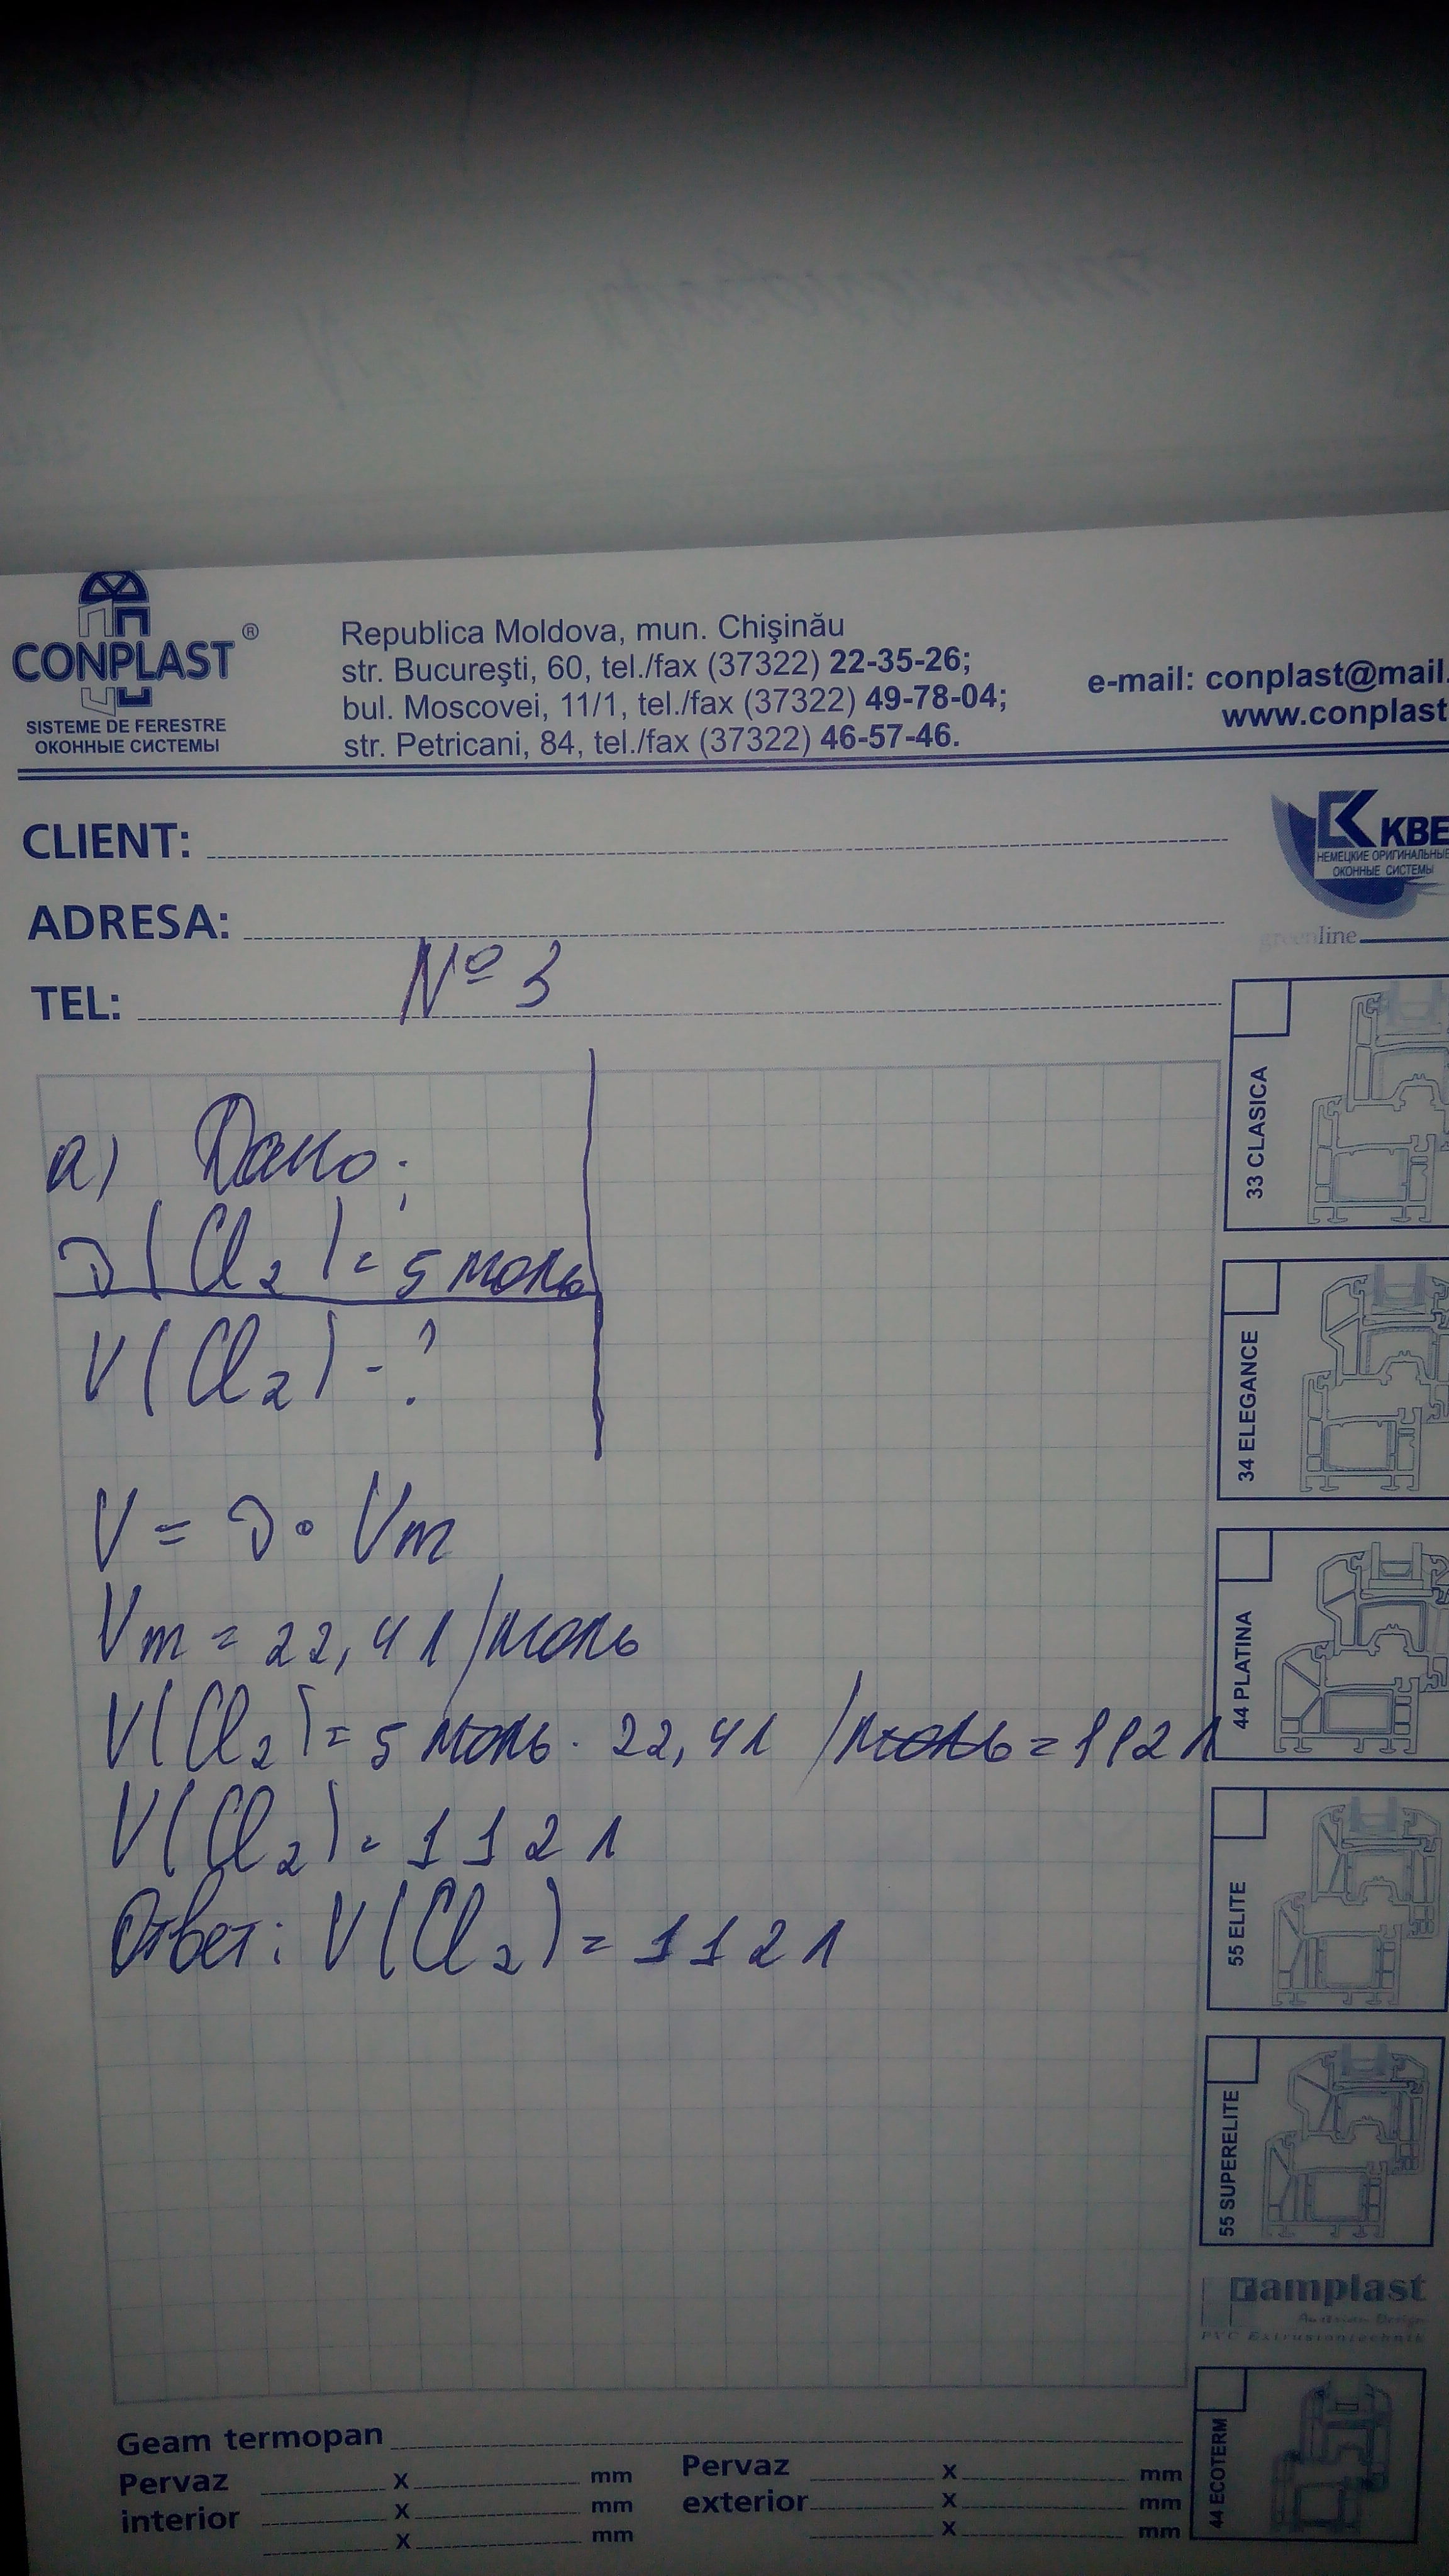 CONPLAST ®
SISTEME DE FERESTRE
ОКОННЫЕ СИСТЕМЫ
Republica Moldova, mun. Chişinău
str. Bucureşti, 60, tel./fax (37322) 22-35-26;
bul. Moscovei, 11/1, tel./fax (37322) 49-78-04;
str. Petricani, 84, tel./fax (37322) 46-57-46.
e-mail: conplast@mail.
www.conplast
CLIENT:
ADRESA:
TEL:
№ 3
KBE
НЕМЕЦКИЕ ОРИГИНАЛЬНЫЕ
ОКОННЫЕ СИСТЕМЫ
greenline
а) Дано:
ν(Cl₂) = 5 моль
V(Cl₂) - ?
V = ν · Vm
Vm = 22,4 л/моль
V(Cl₂) = 5 моль · 22,4 л/моль = 112 л
V(Cl₂) = 112 л
Ответ: V(Cl₂) = 112 л
33 CLASICA
34 ELEGANCE
44 PLATINA
55 ELITE
55 SUPERELITE
Gamplast
Austrian Design
PVC Extrusiontechnik
44 ECOTERM
Geam termopan
Pervaz interior
x mm
x mm
x mm
Pervaz exterior
x mm
x mm
x mm